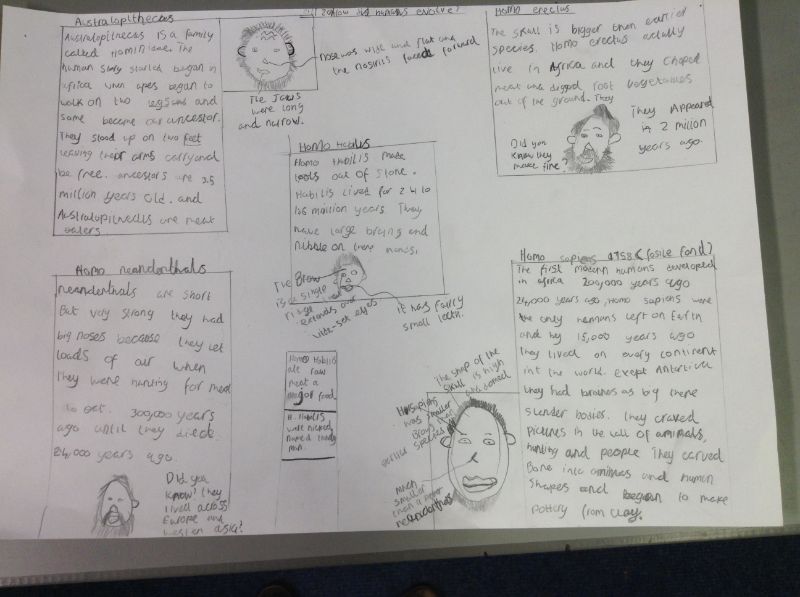 Australopithecus
Australopithecus is a family
called Hominidae. The
human story started began in
africa when apes began to
walk on two legs and and
some became our ancestor.
They stood up on two feet
leaving their arms carry and
be free. ancestors are 3.5
million years old. and
Australopithecus are meat
eaters
How did humans evolve?
nose was wide and flat and
the nostrils faced forward
The Jaws
were long
and narrow.
Homo erectus
The skull is bigger than earlier
species. Homo erectus actully
live in Africa and they choped
meat and digged root vegetables
out of the ground. They
They Appeared
in 2 million
years ago
Did you
know they
make fire?
Homo Habilis
Homo Habilis made
tools out of stone.
Habilis lived for 2.4 to
1.6 million years They
have large brains and
nibble on there hands.
The Brow
is a single
ridge
extends over
eyes
it has fairly
small teeth.
Homo Habilis
ate raw
meat a
major food.
H. Habilis
were nicked
named handy
man.
Homo neanderthals
neanderthals are short
But very strong they had
big noses because they let
loads of air when
they were hunting for meat
to eat. 300,000 years
ago until they died
24,000 years ago.
Did you
know? they
lived across
Europe and
western asia?
The shap of the
skull is high
and domed
H.sapiens
was smaller
Brow than
earlier species
much
smaller
than a
neanderthals
Homo sapiens
The first modern humans developed
in africa 200,000 years ago
24,000 years ago, Homo sapiens were
the only humans left on Earth
and by 15,000 years ago
they lived on every continent
int the world. Exept Antartica
they had brains as big there
slender bodies. They craved
pictures in the wall of animals,
hunting and people They carved
Bone into animals and human
shapes and began to make
pottery from clay.